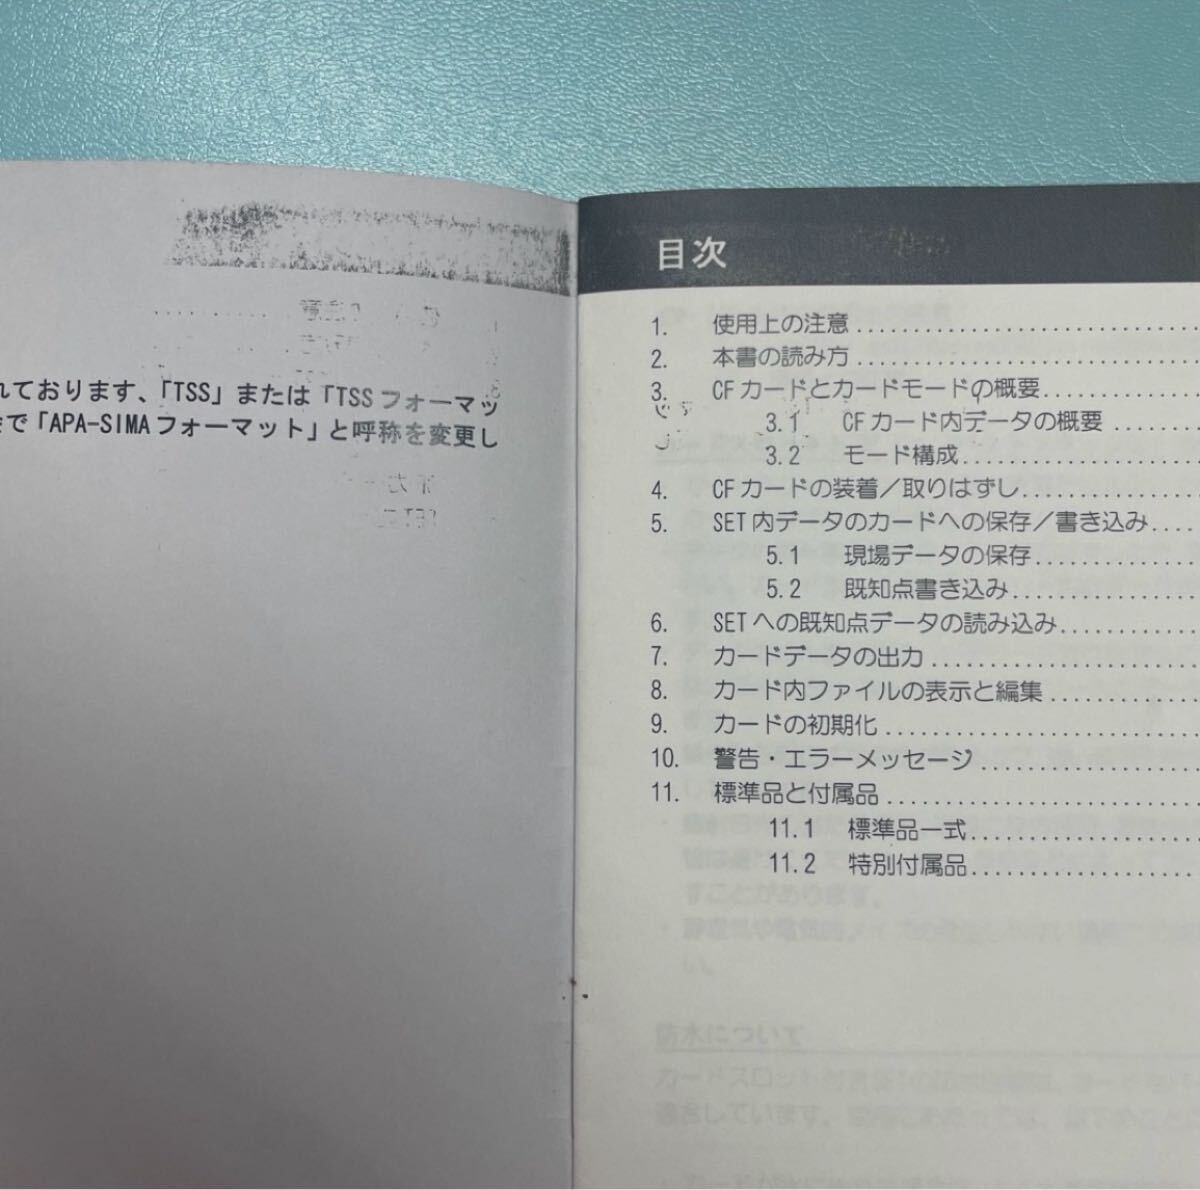 れております、「TSS」または「TSSフォーマッ
で「APA-SIMAフォーマット」と呼称を変更し
目次
1. 使用上の注意
2. 本書の読み方
3. CFカードとカードモードの概要
3.1 CFカード内データの概要
3.2 モード構成
4. CFカードの装着／取りはずし
5. SET内データのカードへの保存／書き込み
5.1 現場データの保存
5.2 既知点書き込み
6. SETへの既知点データの読み込み
7. カードデータの出力
8. カード内ファイルの表示と編集
9. カードの初期化
10. 警告・エラーメッセージ
11. 標準品と付属品
11.1 標準品一式
11.2 特別付属品
すことがあります。
い。
防水について